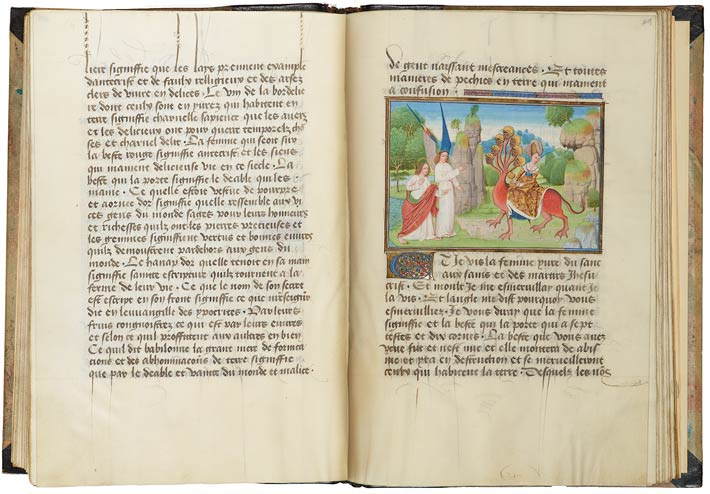 liere signiffie que les lays prennent example
dantecrist et de faulx relligieux et des arsez
clers de viure en delices. Le vin de la bordelie
re dont ceulx sont enyurez qui habitent en
terre signiffie charnelle sapience que les auers
et les delicieux ont pour querre temporelz cho
ses et charnel delit. La femme qui seoit sur
la beste rouge signiffie antecrist et les siens
qui mainent delicieuse vie en ce siecle. La
beste qui la porte signiffie le deable qui les
maine. Ce quelle estoit vestue de pourpre
et aornee dor signiffie quelle ressemble aux vi
ces gens du monde sages pour leurs honneurs
et richesses quilz ont les pierres precieuses et
les gemmes signiffient vertus et bonnes euures
quilz demonstrent pardehors aux gens du
monde. Le hanap dor quelle tenoit en sa main
signiffie saincte escripture quilz tournent a la
forme de leur vie. Ce que le nom de son secret
est escript en son front signiffie ce que nreseignr
dit en leuuangille des ypocrites. Par leurs
fruis congnoistrez ce qui est par leurs euures
et selon ce quil proffitent aux aultres en bien
Ce quil dit babilonne la grant mere de fornica
cions et des abhominacions de terre signiffie
que par le deable et vainte du monde et malice.
de gent naissant mescreances. Et toutes
manieres de pechies en terre qui mainent
a confusion
Et Ie vis la femme yure du sanc
aux sains et des martirs Ihesu
crist. Et moult Ie me esmerueillay quant Ie
la vis. Et langle me dist pourquoy vous
esmerueilliez. Ie vous diray que la femme
signiffie et la beste qui la porte qui a sept
testes et dix cornes. La beste que vous auez
veue fut et nest mie et elle montera de abis
me et yra en destruction et se merueilleront
ceulx qui habitent la terre. Desquelz les nõs